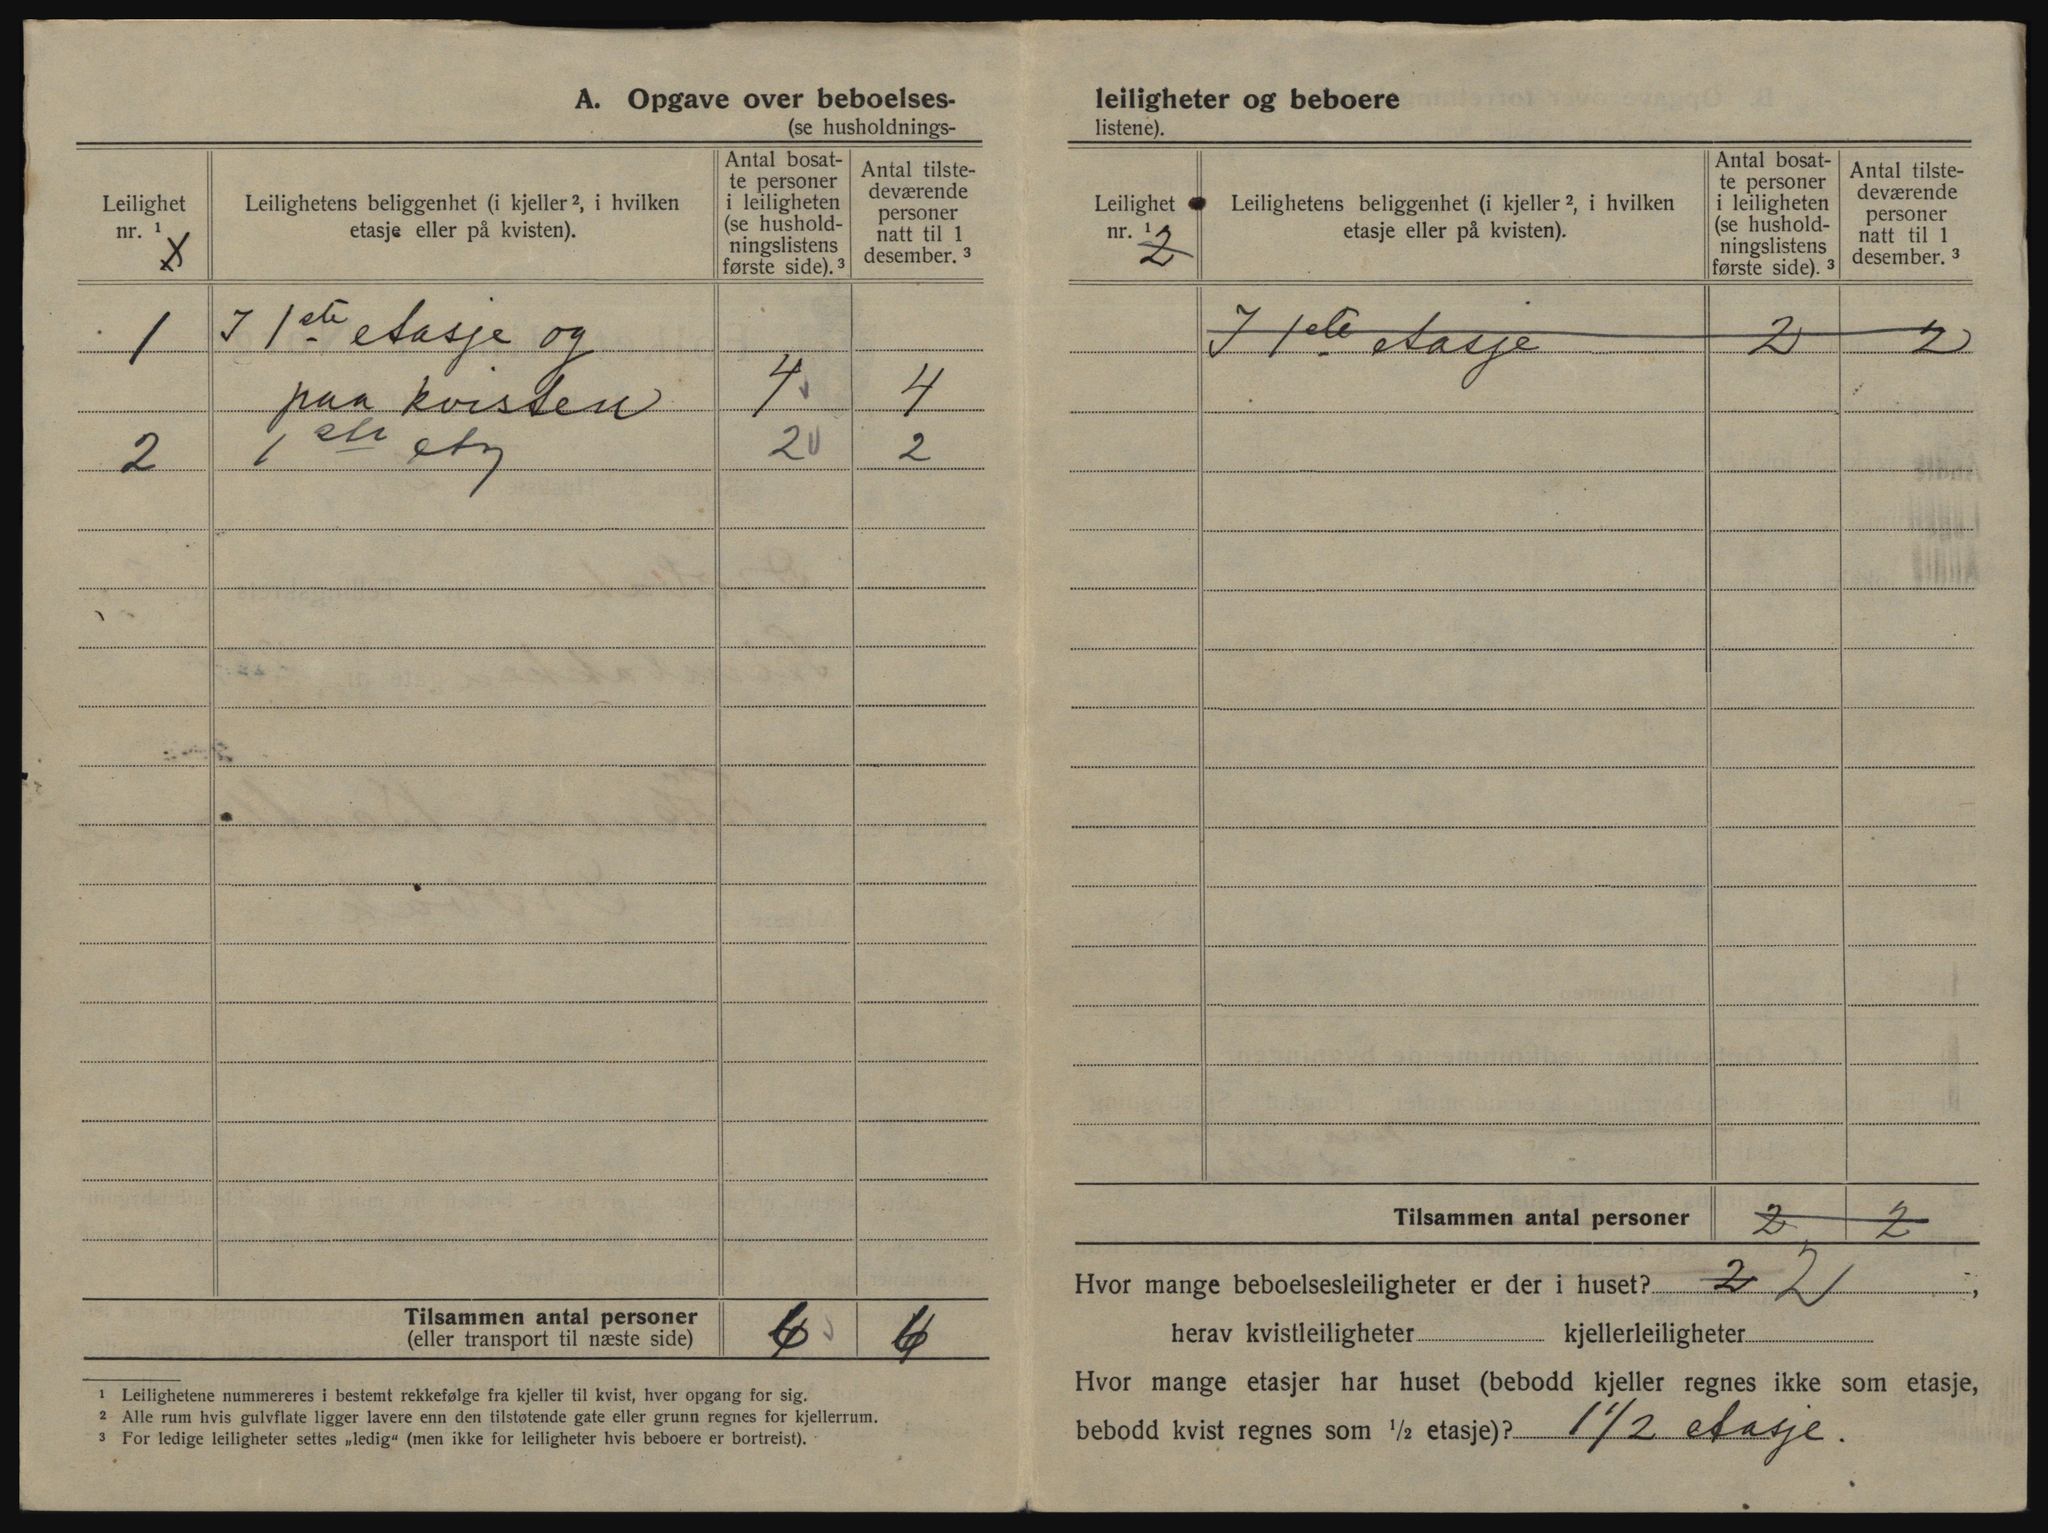 A. Opgave over beboelses-
(se husholdnings-
Leilighet
nr. ¹
Leilighetens beliggenhet (i kjeller ², i hvilken
etasje eller på kvisten).
Antal bosat-
te personer
i leiligheten
(se hushold-
ningslistens
første side). ³
Antal tilste-
deværende
personer
natt til 1
desember. ³
1 I 1ste etasje og
paa kvisten 4 4
2 1ste etg 2 2
Tilsammen antal personer
(eller transport til næste side) 6 6
¹ Leilighetene nummereres i bestemt rekkefølge fra kjeller til kvist, hver opgang for sig.
² Alle rum hvis gulvflate ligger lavere enn den tilstøtende gate eller grunn regnes for kjellerrum.
³ For ledige leiligheter settes „ledig“ (men ikke for leiligheter hvis beboere er bortreist).
leiligheter og beboere
listene).
Leilighet
nr. ¹
2
Leilighetens beliggenhet (i kjeller ², i hvilken
etasje eller på kvisten).
Antal bosat-
te personer
i leiligheten
(se hushold-
ningslistens
første side). ³
Antal tilste-
deværende
personer
natt til 1
desember. ³
I 1ste etasje 2 2
Tilsammen antal personer 2 2
Hvor mange beboelsesleiligheter er der i huset? 2 2 ;
herav kvistleiligheter kjellerleiligheter
Hvor mange etasjer har huset (bebodd kjeller regnes ikke som etasje,
bebodd kvist regnes som ½ etasje)? 1 1/2 etasje.